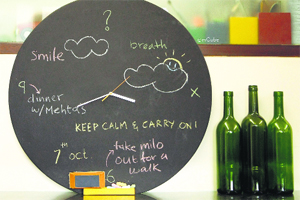 ?
smile
breath
9
dinner
w/Mehtas
x
KEEP CALM & CARRY ON!
7th oct
take milo
out for a
walk
6